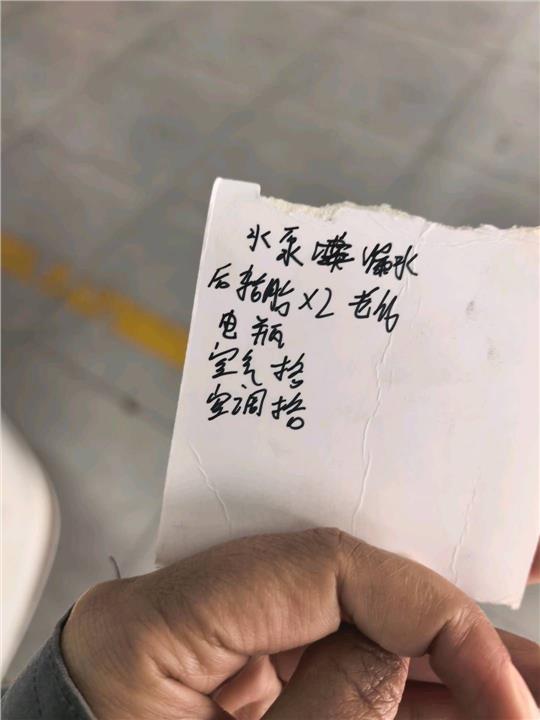 水泵 漏水
后轮胎X2 老化
电瓶
空气格
空调格